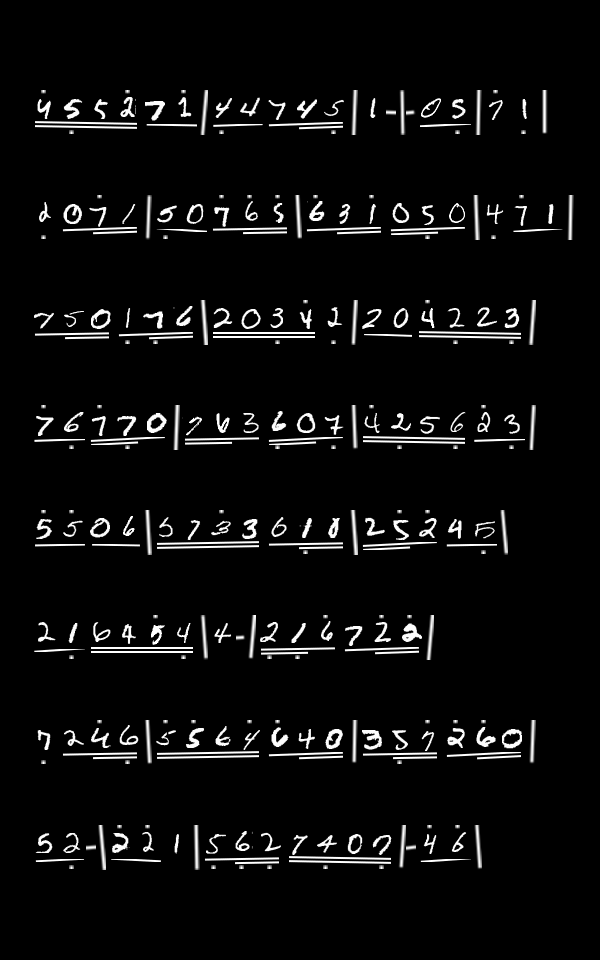 455271|44745|1-|-05|71|
2071|50765|631050|471|
750176|20342|204223|
76770|763607|425623|
5506|5733610|25245|
216454|4-|216722|
7246|5564640|357260|
52-|221|5627407|-46|